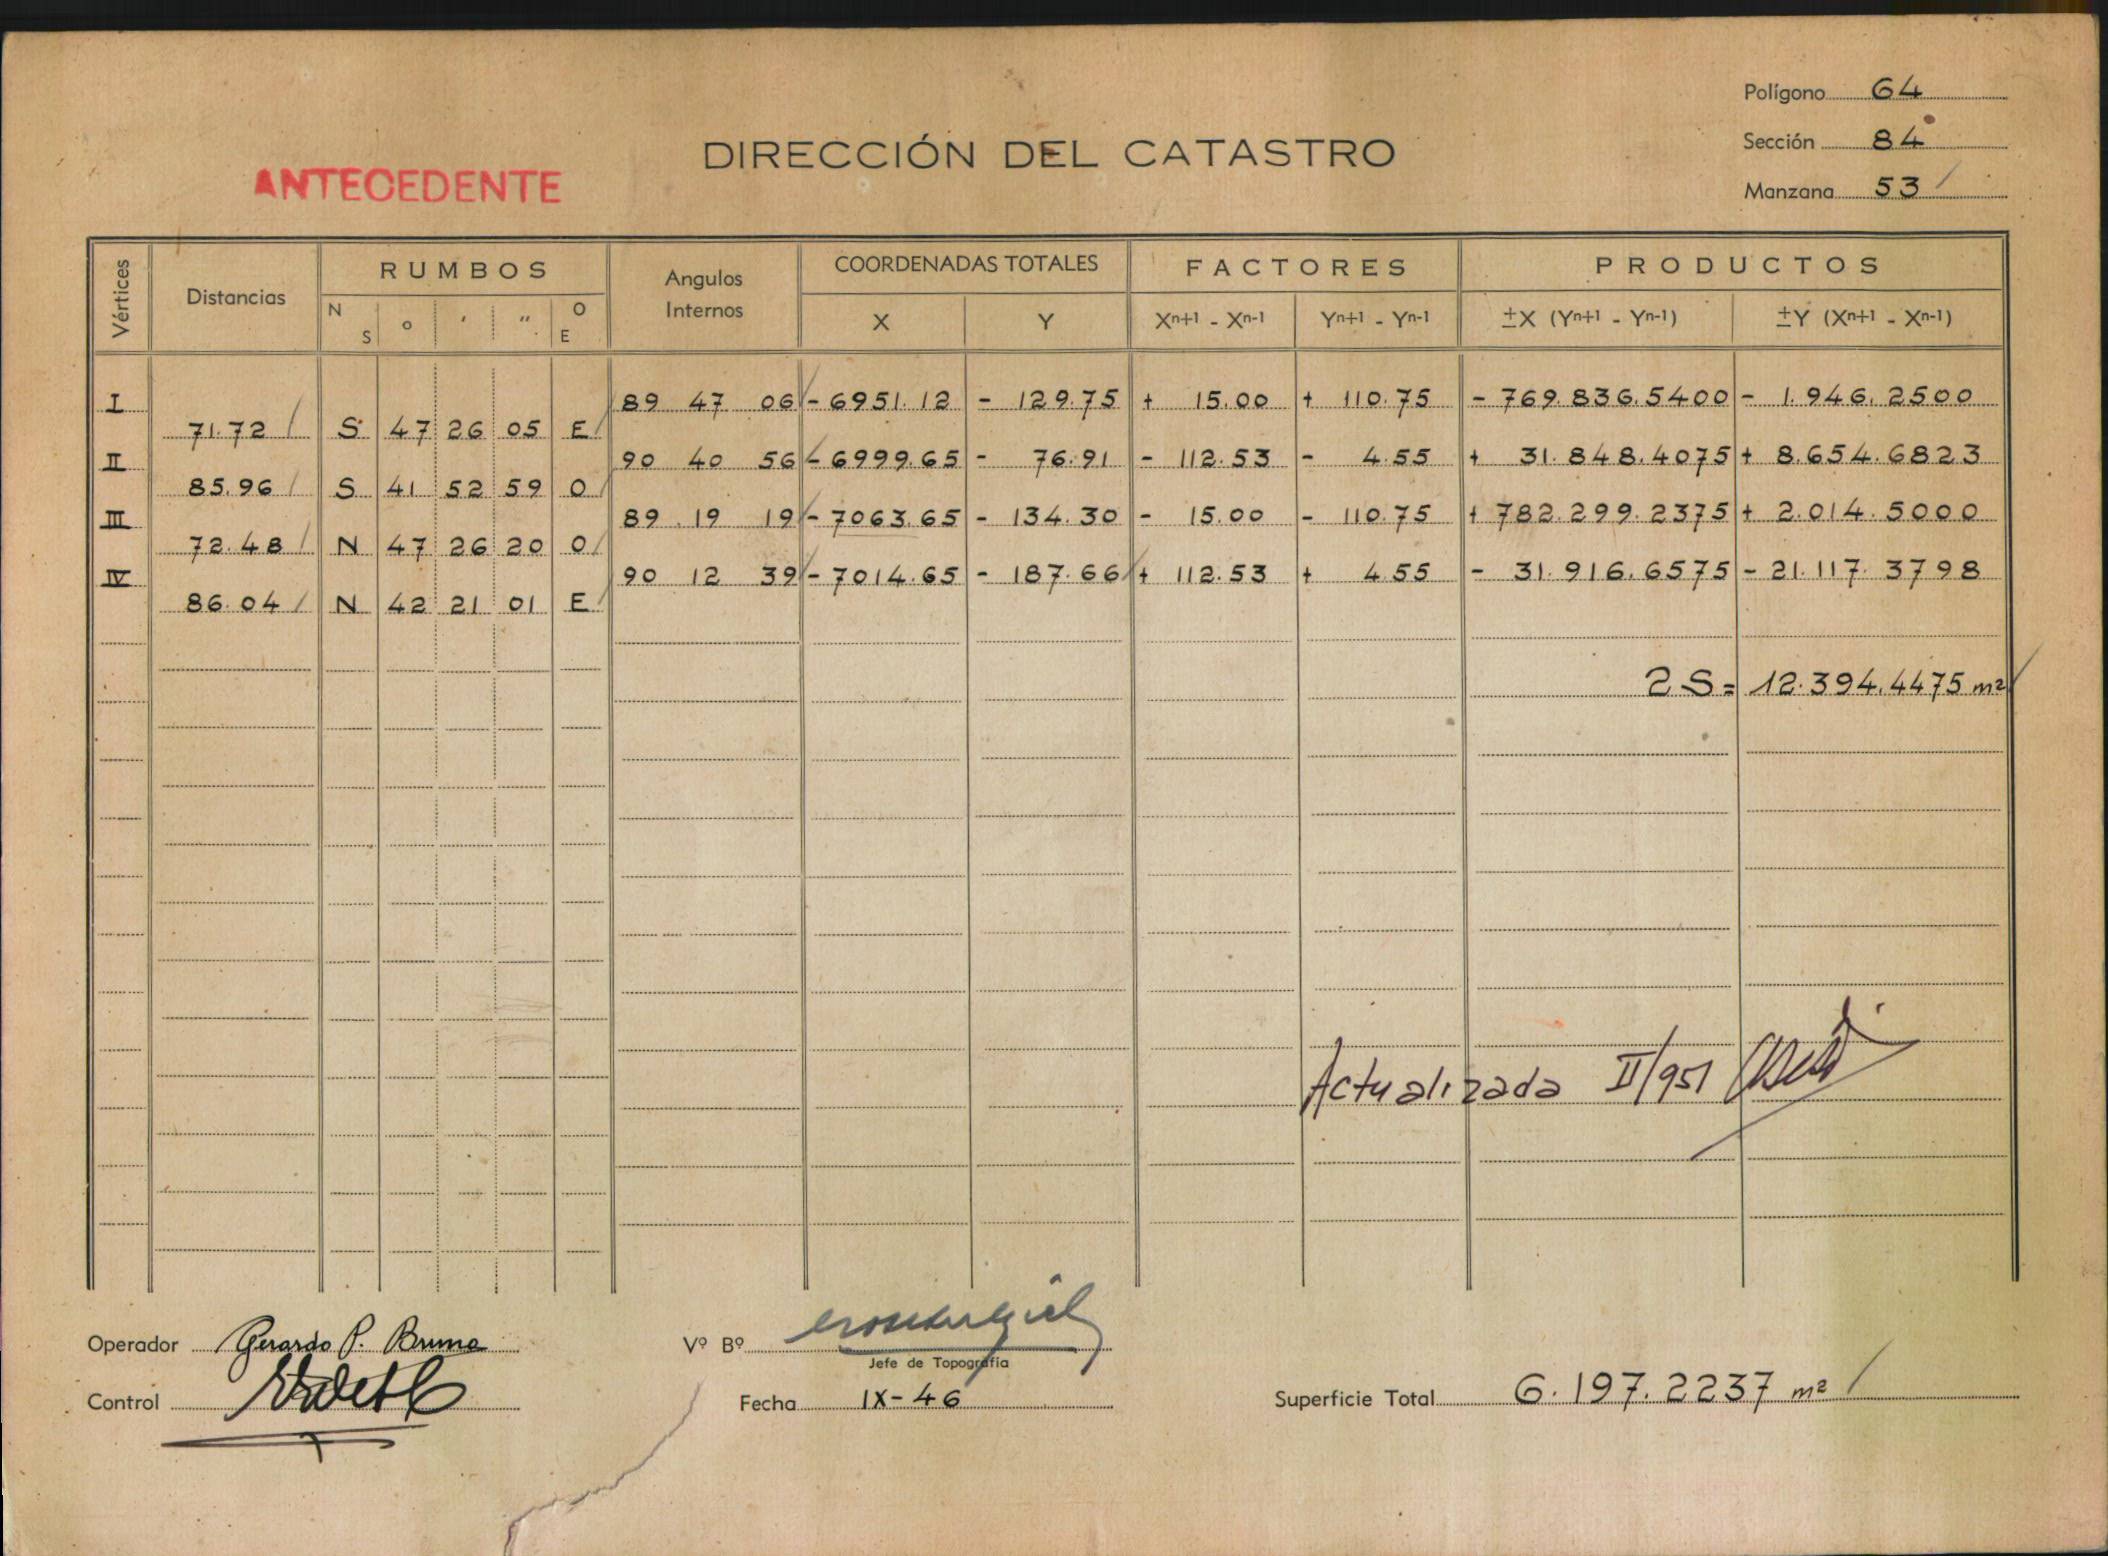 Polígono 64
DIRECCIÓN DEL CATASTRO
Sección 84
ANTECEDENTE
Manzana 53
Vértices Distancias RUMBOS Angulos Internos COORDENADAS TOTALES FACTORES PRODUCTOS
N S o ' " O E X Y Xn+1 - Xn-1 Yn+1 - Yn-1 ±X (Yn+1 - Yn-1) ±Y (Xn+1 - Xn-1)
I 89 47 06 - 6951.12 - 129.75 + 15.00 + 110.75 - 769.836.5400 - 1.946.2500
71.72 S 47 26 05 E
II 90 40 56 - 6999.65 - 76.91 - 112.53 - 4.55 + 31.848.4075 + 8.654.6823
85.96 S 41 52 59 O
III 89 19 19 - 7063.65 - 134.30 - 15.00 - 110.75 + 782.299.2375 + 2.014.5000
72.48 N 47 26 20 O
IV 90 12 39 - 7014.65 - 187.66 + 112.53 + 4.55 - 31.916.6575 - 21.117.3798
86.04 N 42 21 01 E
2 S = 12.394.4475 m²
Actualizada II/951
Operador Gerardo P. Bruno
Vº Bº
Jefe de Topografía
Control
Fecha IX-46
Superficie Total 6.197.2237 m²